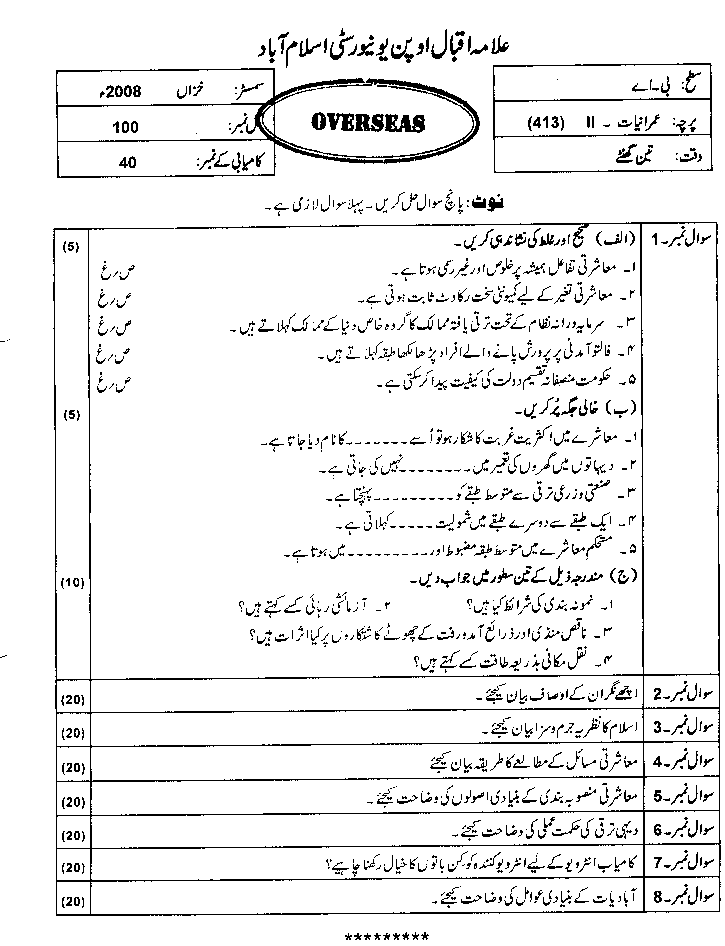 علامہ اقبال اوپن یونیورسٹی اسلام آباد
سطح: بی۔اے
پرچہ: عمرانیات ۔ II (413)
وقت: تین گھنٹے
OVERSEAS
سمسٹر: خزاں 2008ء
کل نمبر: 100
کامیابی کے نمبر: 40
نوٹ: پانچ سوال حل کریں۔ پہلا سوال لازمی ہے۔
سوال نمبر۔1 (الف) صحیح اور غلط کی نشاندہی کریں۔ (5)
۱۔ معاشرتی تفاعل ہمیشہ پرخلوص اور غیر رسمی ہوتا ہے۔ ص/غ
۲۔ معاشرتی تغیر کے لیے کمیونٹی سخت رکاوٹ ثابت ہوتی ہے۔ ص/غ
۳۔ سرمایہ ورانہ نظام کے تحت ترقی یافتہ ممالک کا گروہ خاص دنیا کے ممالک کہلاتے ہیں۔ ص/غ
۴۔ فالتو آمدنی پر پرورش پانے والے افراد پڑھا لکھا طبقہ کہلاتے ہیں۔ ص/غ
۵۔ حکومت منصفانہ تقسیم دولت کی کیفیت پیدا کر سکتی ہے۔ ص/غ
(ب) خالی جگہ پُر کریں۔ (5)
۱۔ معاشرے میں اکثریت غربت کا شکار ہو تو اُسے ۔۔۔۔۔۔۔ کا نام دیا جاتا ہے۔
۲۔ دیہاتوں میں گھروں کی تعمیر میں ۔۔۔۔۔۔۔۔ نہیں کی جاتی ہے۔
۳۔ صنعتی و زرعی ترقی سے متوسط طبقے کو ۔۔۔۔۔۔۔۔۔ پہنچتا ہے۔
۴۔ ایک طبقے سے دوسرے طبقے میں شمولیت ۔۔۔۔۔ کہلاتی ہے۔
۵۔ مستحکم معاشرے میں متوسط طبقہ مضبوط اور ۔۔۔۔۔۔۔۔۔ میں ہوتا ہے۔
(ج) مندرجہ ذیل کے تین سطور میں جواب دیں۔ (10)
۱۔ نمونہ بندی کی شرائط کیا ہیں؟ ۲۔ آزمائشی رہائی کسے کہتے ہیں؟
۳۔ ناقص منڈی اور ذرائع آمدورفت کے چھوٹے کاشتکاروں پر کیا اثرات ہیں؟
۴۔ نقل مکانی بذریعہ طاقت کسے کہتے ہیں؟
سوال نمبر۔2 اچھے نگران کے اوصاف بیان کیجئے۔ (20)
سوال نمبر۔3 اسلام کا نظریہ جرم و سزا بیان کیجئے۔ (20)
سوال نمبر۔4 معاشرتی مسائل کے مطالعے کا طریقہ بیان کیجئے (20)
سوال نمبر۔5 معاشرتی منصوبہ بندی کے بنیادی اصولوں کی وضاحت کیجئے۔ (20)
سوال نمبر۔6 دیہی ترقی کی حکمت عملی کی وضاحت کیجئے۔ (20)
سوال نمبر۔7 کامیاب انٹرویو کے لیے انٹرویو کنندہ کو کن باتوں کا خیال رکھنا چاہیے؟ (20)
سوال نمبر۔8 آبادیات کے بنیادی عوامل کی وضاحت کیجئے۔ (20)
*********